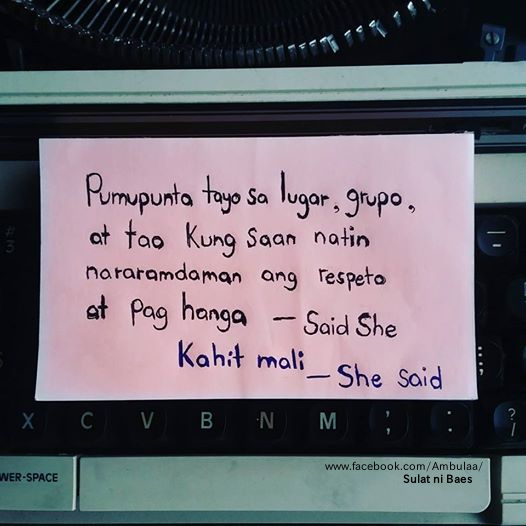 Pumupunta tayo sa lugar, grupo,
at tao kung saan natin
nararamdaman ang respeto
at pag hanga – Said She
Kahit mali – She said
# 3
X C V B N M ; :
? /
WER-SPACE
www.facebook.com/Ambulaa/
Sulat ni Baes